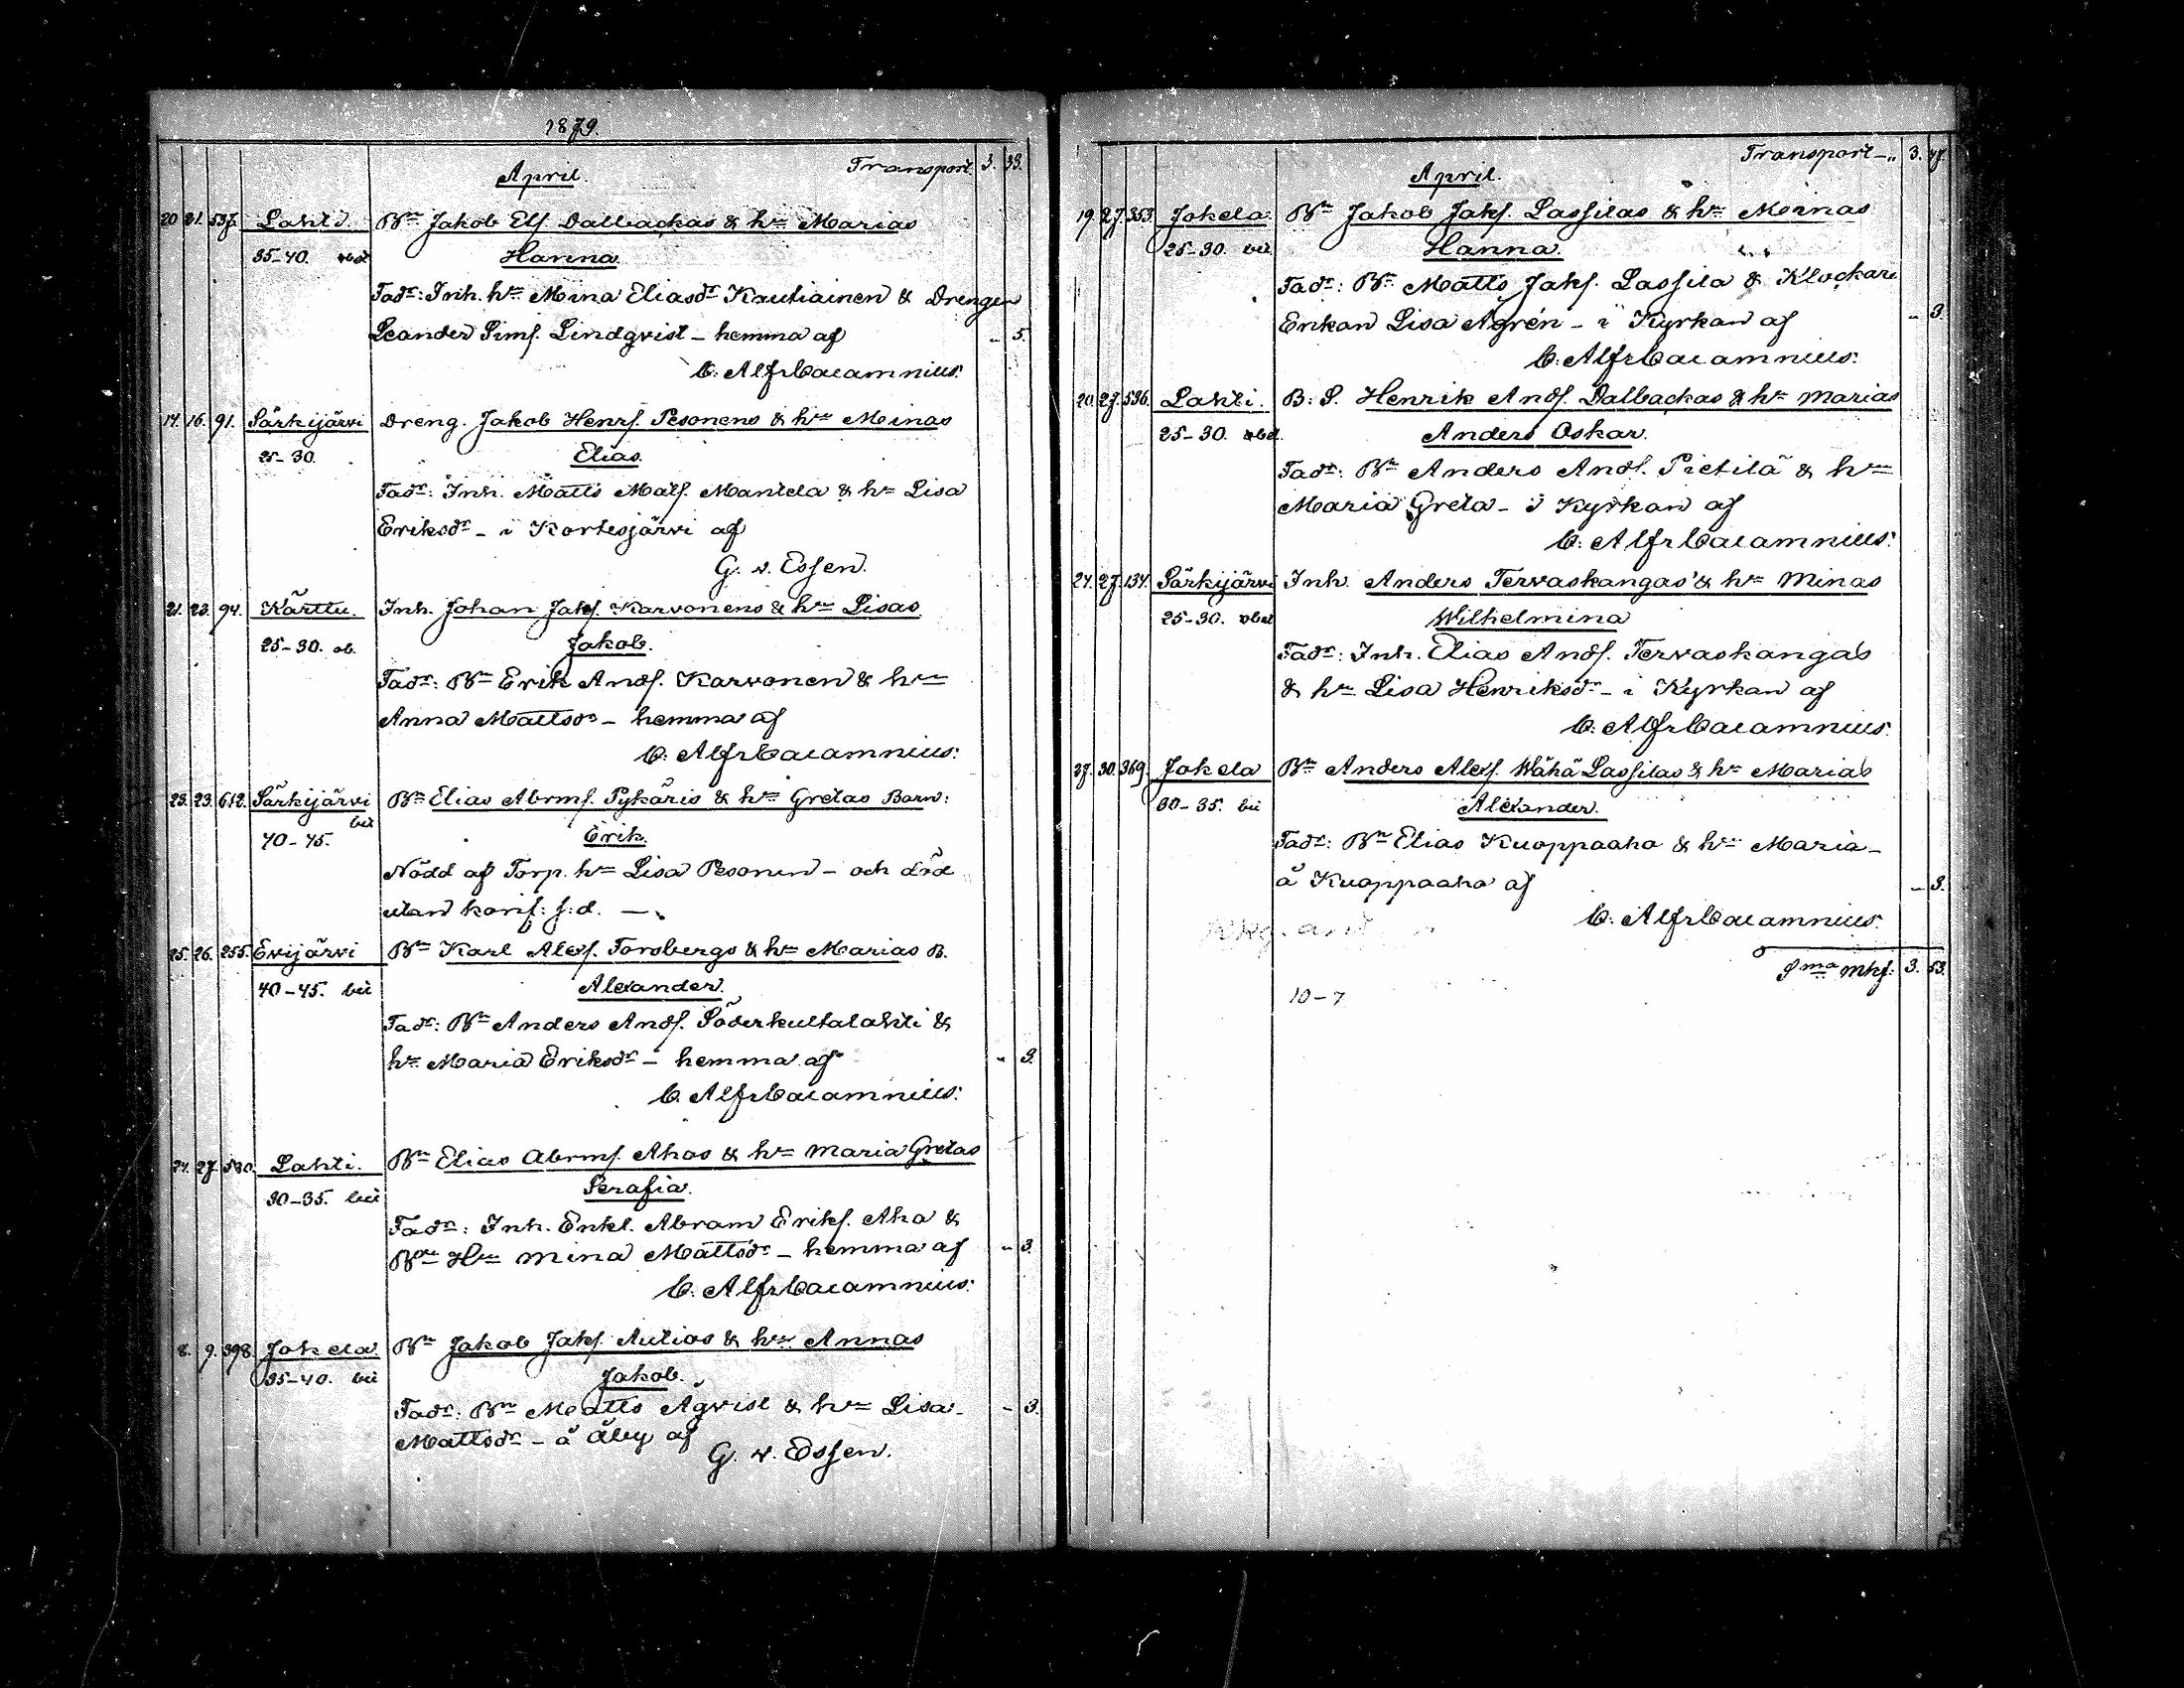 1879.
April. Transport 3. 33.
20 21. 537. Lahti. Bn Jakob Els. Dalbackas & hn Marias
35-40. Hanna
Fadr: Inh. hn Mina Eliasdr Krutiainen & Drengen
Leander Sims. Lindqvist - hemma af - 5.
C. Alfr Cajamnius:
14. 16. 91. Särkijärvi Dreng. Jakob Henrs. Pesonens & hn Minas
25-30. Elias
Fadr: Inh. Matts Mats. Mantela & hn Lisa
Eriksdr - i Kortesjärvi af
G. v. Essen.
21. 23. 94. Kärttu. Inh. Johan Jaks. Karvonens & hn Lisas
25-30. ob. Jakob.
Fadr: Bn Erik Ands. Karvonen & hn
Anna Mattsdr - hemma af
C. Alfr Cajamnius:
23. 23. 612. Särkijärvi Bn Elias Abrms. Pykäris & hn Gretas Barn:
40-45. Erik.
Nödd af Torp. hn Lisa Pesonen - och död
utan konf: s: d. —
25. 26. 255. Evijärvi Bn Karl Alexs. Forsbergs & hn Marias B.
40-45. Alexander.
Fadr: Bn Anders Ands. Söderkultalahti &
hn Maria Eriksdr - hemma af - 3.
C. Alfr Cajamnius:
24. 27. 580. Lahti. Bn Elias Abrms. Ahos & hn Maria Gretas
30-35. Serafia.
Fadr: Inh. Enkl. Abram Eriks. Aho &
Bn Hn Mina Mattsdr - hemma af - 3.
C. Alfr Cajamnius:
8. 9. 398. Jokela. Bn Jakob Jaks. Autios & hn Annas
35-40. Jakob.
Fadr: Bn Matts Åqvist & hn Lisa - 3.
Mattsdr - å Åby af
G. v. Essen.
April. Transport - „ 3. 47.
19. 27. 353. Jokela. Bn Jakob Jaks. Lassilas & hn Minas
25-30. Hanna.
Fadr: Bn Matts Jaks. Lassila & Klockare
Enkan Lisa Ågrén - i Kyrkan af - 3.
C. Alfr Cajamnius:
20. 27. 536. Lahti. B: S. Henrik Ands. Dalbackas & hn Marias
25-30. Anders Oskar.
Fadr: Bn Anders Ands. Pietilä & hn
Maria Greta - i Kyrkan af
C. Alfr Cajamnius:
24. 27. 134. Särkijärvi Inh. Anders Tervaskangas' & hn Minas
25-30. Wilhelmina
Fadr: Inh. Elias Ands. Tervaskangas
& hn Lisa Henriksdr - i Kyrkan af
C. Alfr Cajamnius:
27. 30. 369. Jokela Bn Anders Alexs. Wähä Lassilas & hn Marias
30-35. Alexander.
Fadr: Bn Elias Kuoppaaho & hn Maria -
å Kuoppaaho af - 3.
C. Alfr Cajamnius.
Sma Mkf: 3. 53.
10-7